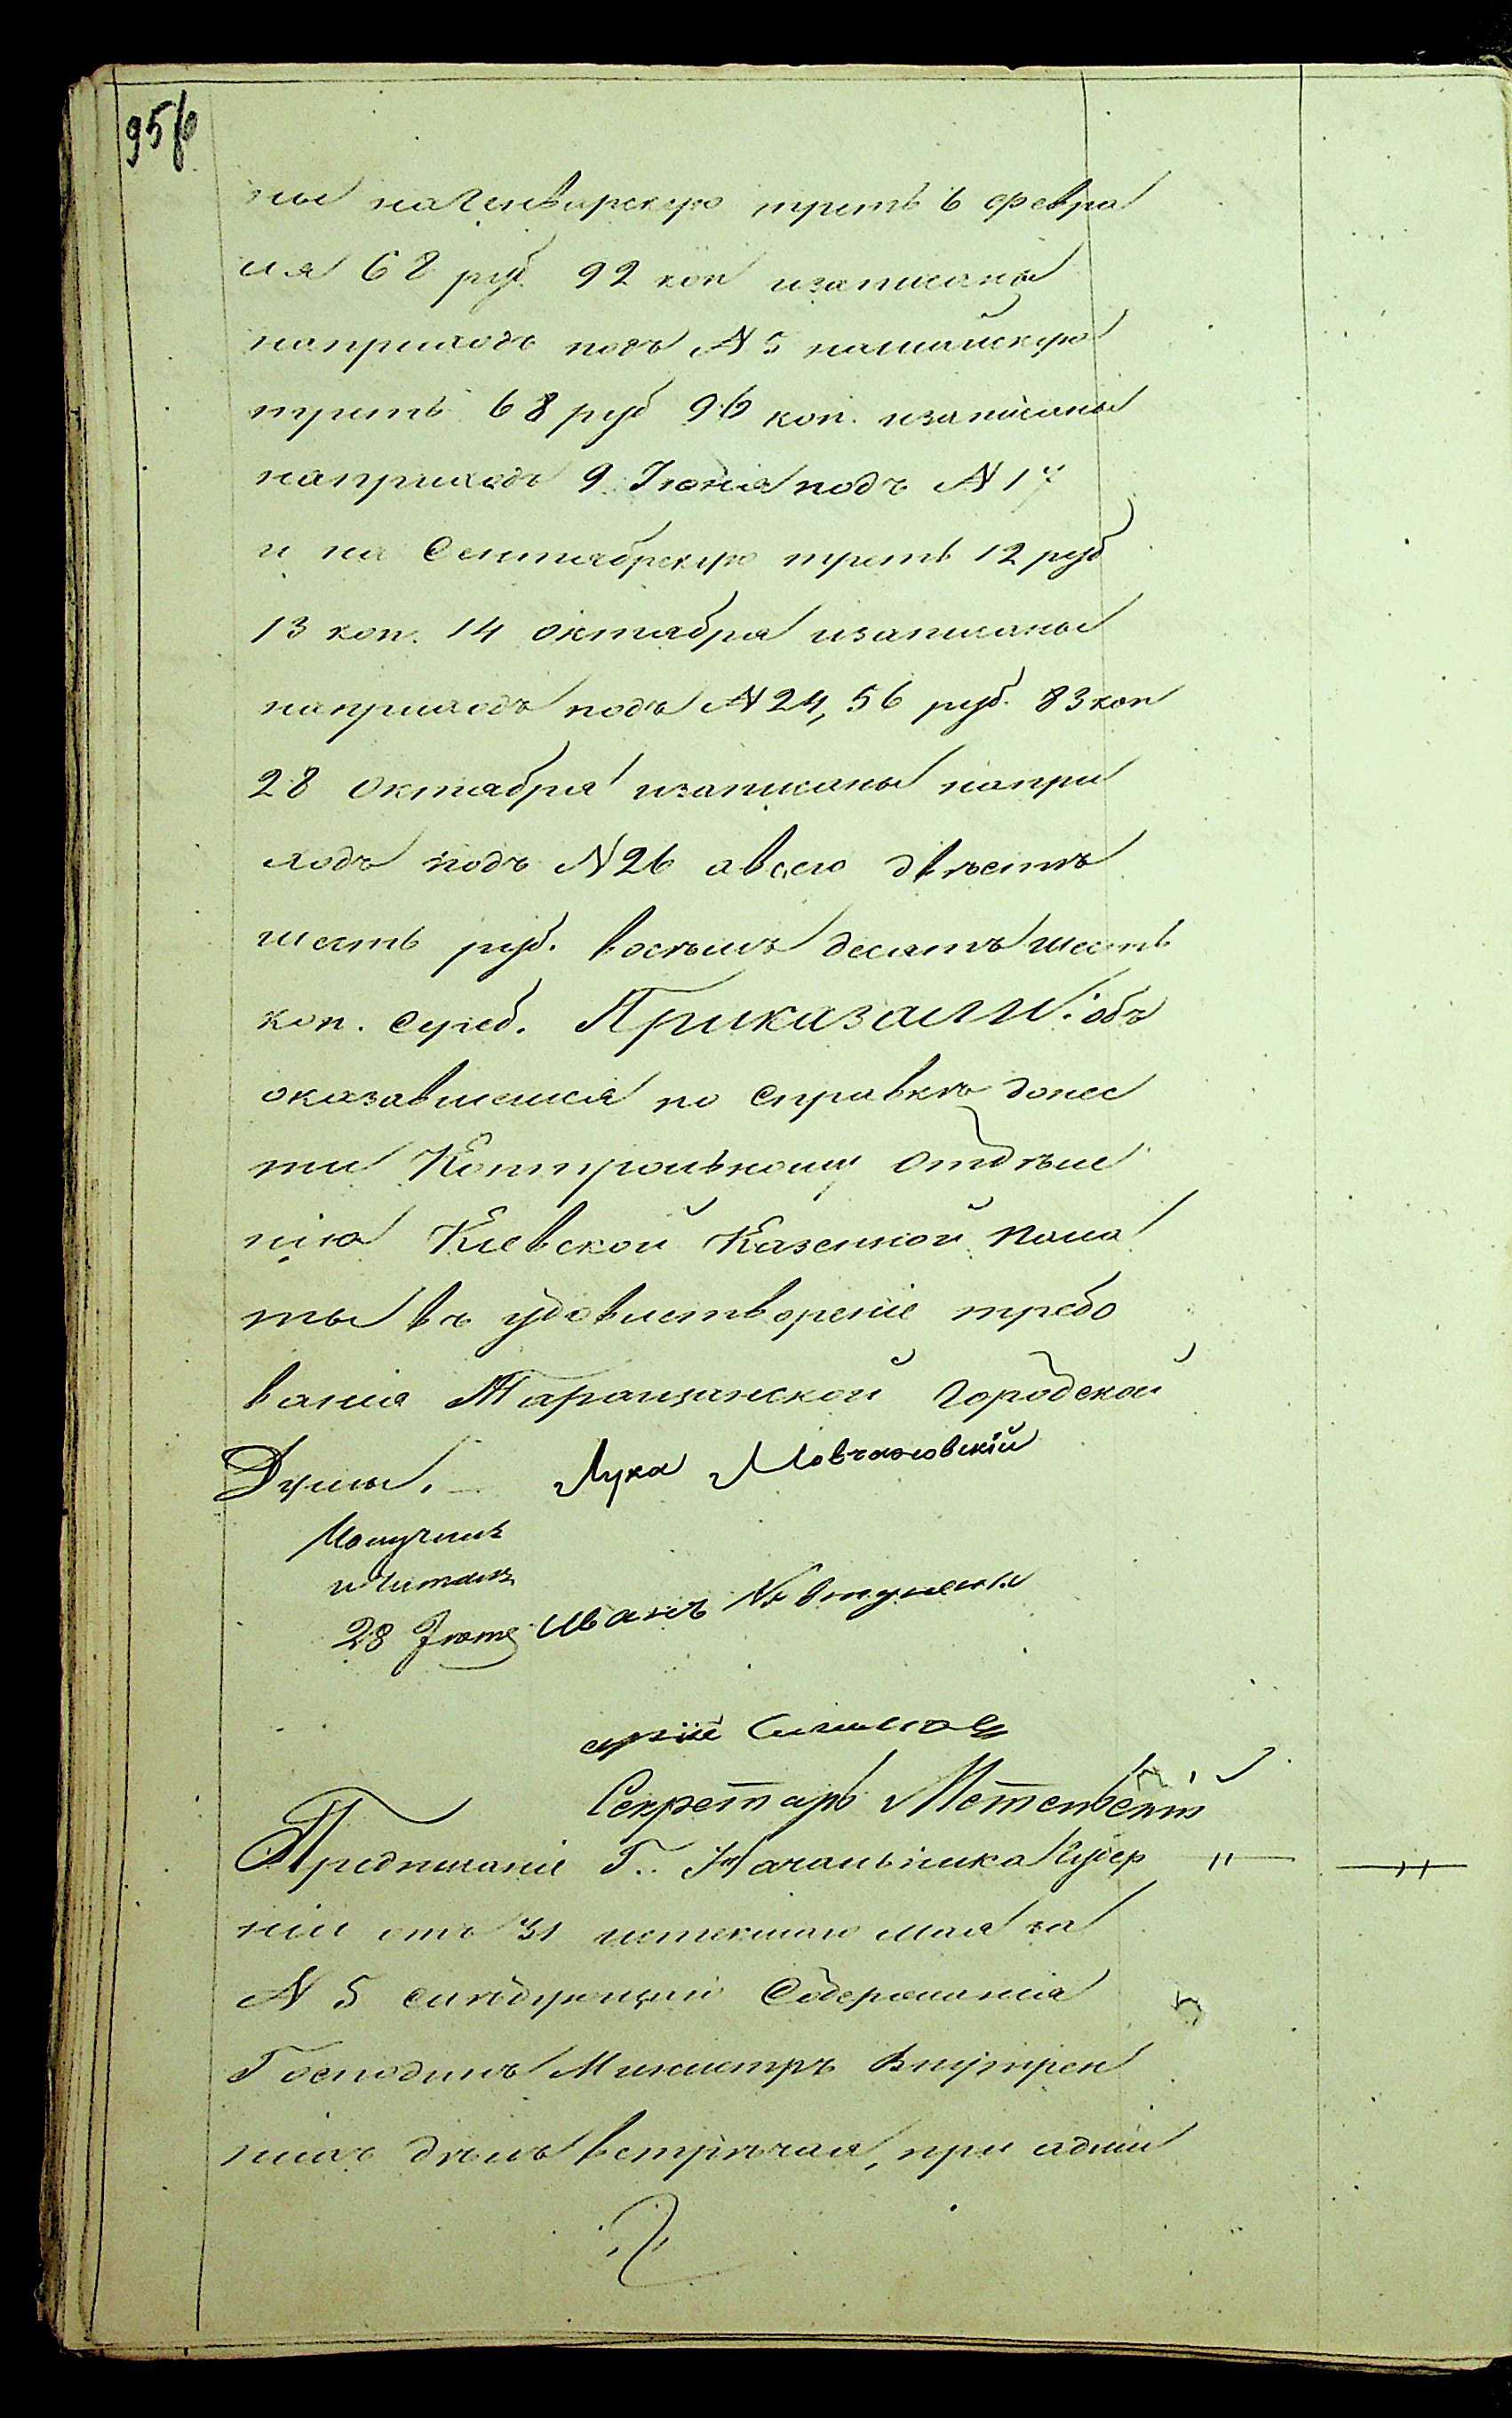 956
ны на Генварскую треть 6 Февра
ля 68 руб. 92 коп изаписаны
наприходъ подъ N 5 намайскую
треть 68 руб 96 коп. изаписаны
наприходъ 9 Іюня подъ N 17
и на Сентябрскую треть 12 руб
13 коп. 14 октября изаписаны
наприходъ подъ N 24, 56 руб. 83 коп
28 октября изаписаны напри
ходъ подъ N 26 авсего двѣстѣ
шесть руб. восѣмъ десятъ шесть
коп. Сереб. Приказали: объ
оказавшемся по Справкѣ донес
ти Контрольному Отдѣле
нію Кіевской Казенной Пала
ты въ удовлетвореніе требо
ванія Таращанской Городской
Думы. Лука
28 Иванъ
Секретарь
Предписаніе Г. Начальника Губер
ніи отъ 31 истекшаго мая за
N 5 слѣдующаго Содержанія
Господинъ Министръ Внутрен
нихъ дѣлъ встрѣчая, при адми